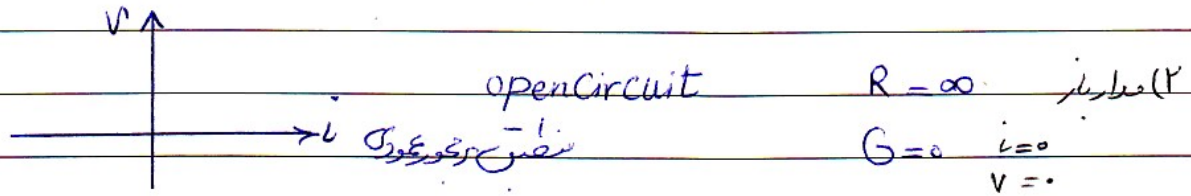 V
۲) مدار باز R = ∞ opencircuit
i منطبق بر محور عمودی G = 0 i = 0
V = 0